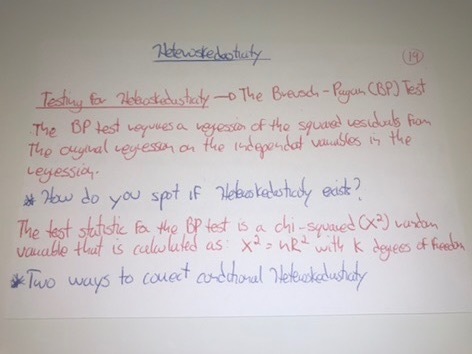 Heteroskedasticity
19
Testing for Heteroskedasticity → The Breusch-Pagan (BP) Test
The BP test requires a regression of the squared residuals from
the original regression on the independent variables in the
regression.
* How do you spot if Heteroskedasticity exists?
The test statistic for the BP test is a chi-squared (X²) random
variable that is calculated as: X² = nR² with K degrees of freedom
* Two ways to correct conditional Heteroskedasticity